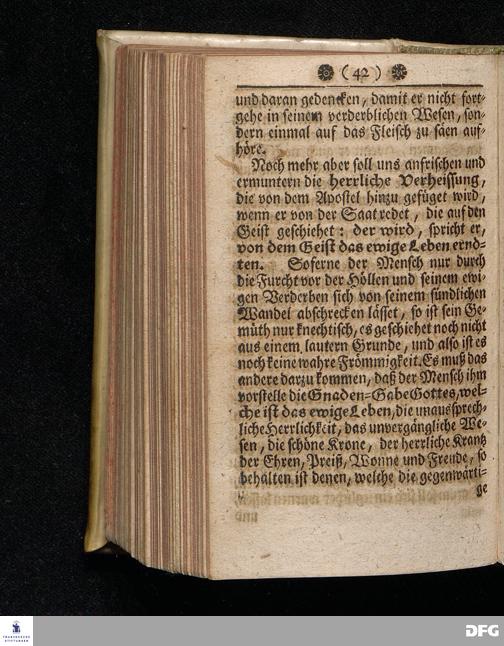 ( 42 )
und daran gedencken, damit er nicht fort-
gehe in seinem verderblichen Wesen, son-
dern einmal auf das Fleisch zu säen auf-
höre.
Noch mehr aber soll uns anfrischen und
ermuntern die herrliche Verheissung,
die von dem Apostel hinzu gefüget wird,
wenn er von der Saat redet, die auf den
Geist geschiehet: der wird, spricht er,
von dem Geist das ewige Leben ernd-
ten. Soferne der Mensch nur durch
die Furcht vor der Höllen und seinem ewi-
gen Verderben sich von seinem sündlichen
Wandel abschrecken lässet, so ist sein Ge-
müth nur knechtisch, es geschiehet noch nicht
aus einem lautern Grunde, und also ist es
noch keine wahre Frömmigkeit. Es muß das
andere darzu kommen, daß der Mensch ihm
vorstelle die Gnaden-Gabe Gottes, wel-
che ist das ewige Leben, die unaussprech-
liche Herrlichkeit, das unvergängliche We-
sen, die schöne Krone, der herrliche Krantz
der Ehren, Preiß, Wonne und Freude, so
behalten ist denen, welche die gegenwärti-
ge
FRANCKESCHE
STIFTUNGEN
DFG